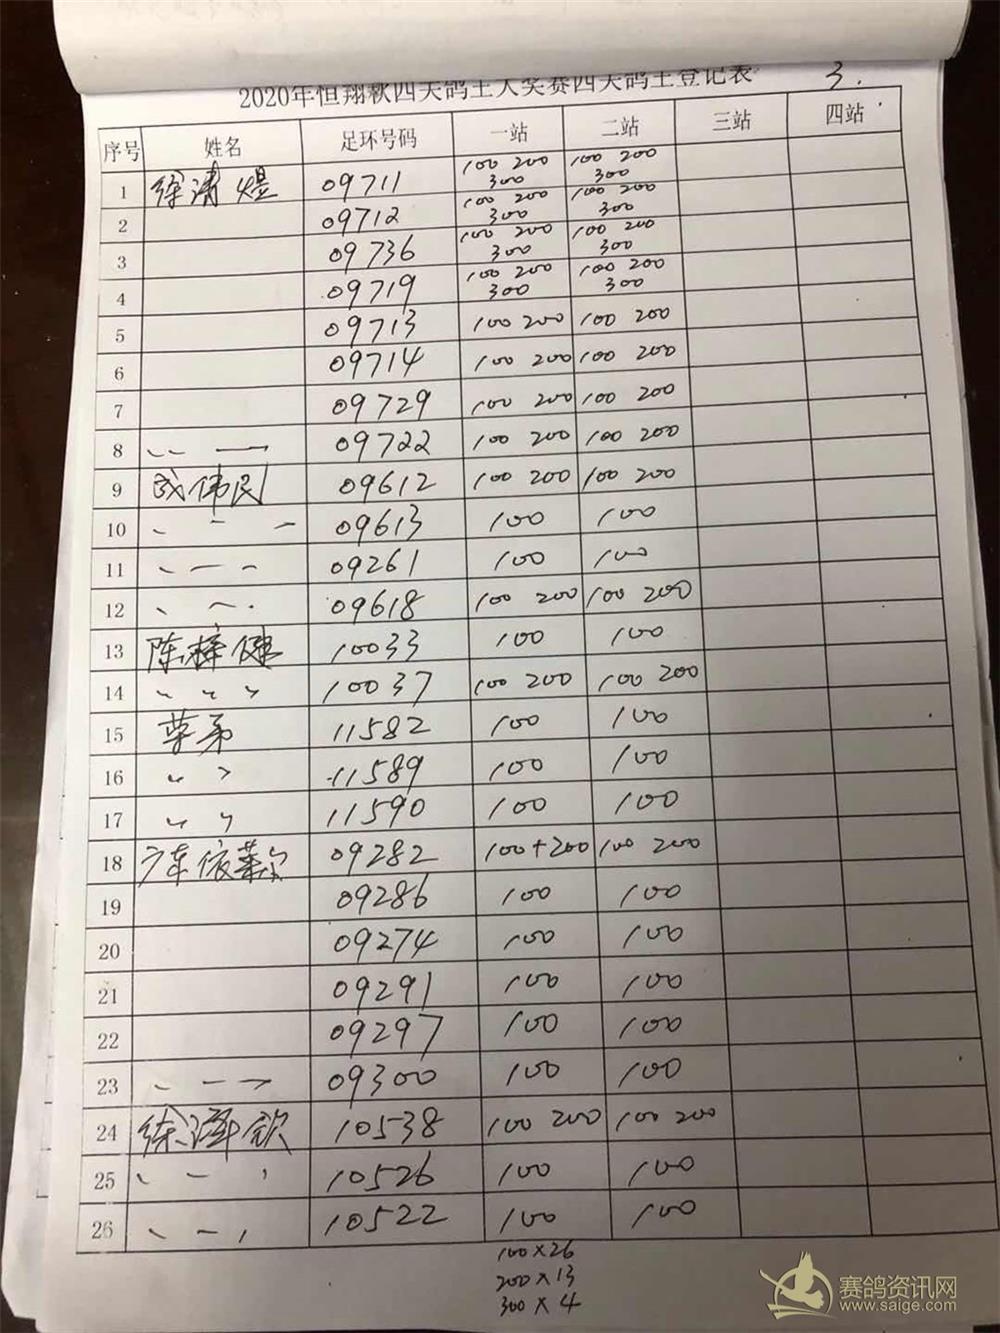 2020年恒翔秋四天鸽王大奖赛四天鸽王登记表 3.
序号 姓名 足环号码 一站 二站 三站 四站
1 徐清煜 09711 100 200 300 100 200 300
2 09712 100 200 300 100 200 300
3 09736 100 200 300 100 200 300
4 09719 100 200 300 100 200 300
5 09713 100 200 100 200
6 09714 100 200 100 200
7 09729 100 200 100 200
8 09722 100 200 100 200
9 成伟民 09612 100 200 100 200
10 09613 100 100
11 09261 100 100
12 09618 100 200 100 200
13 陈梓健 10033 100 100
14 〃 〃 〃 10037 100 200 100 200
15 弟 11582 100 100
16 〃 〃 11589 100 100
17 〃 〃 11590 100 100
18 广东依莱尔 09282 100+200 100 200
19 09286 100 100
20 09274 100 100
21 09291 100 100
22 09297 100 100
23 09300 100 100
24 徐泽钦 10538 100 200 100 200
25 10526 100 100
26 10522 100 100
100×26
200×13
300×4
赛鸽资讯网
www.saige.com